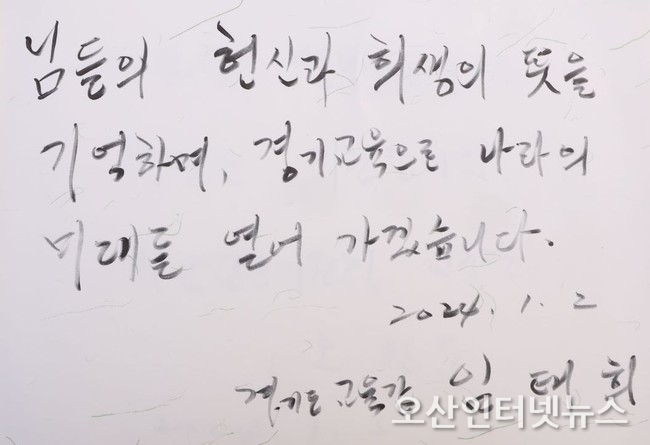 님들의 헌신과 희생의 뜻을
기억하며, 경기교육으로 나라의
미래를 열어 가겠습니다.
2024. 1. 2
경기도교육감 임태희
오산인터넷뉴스